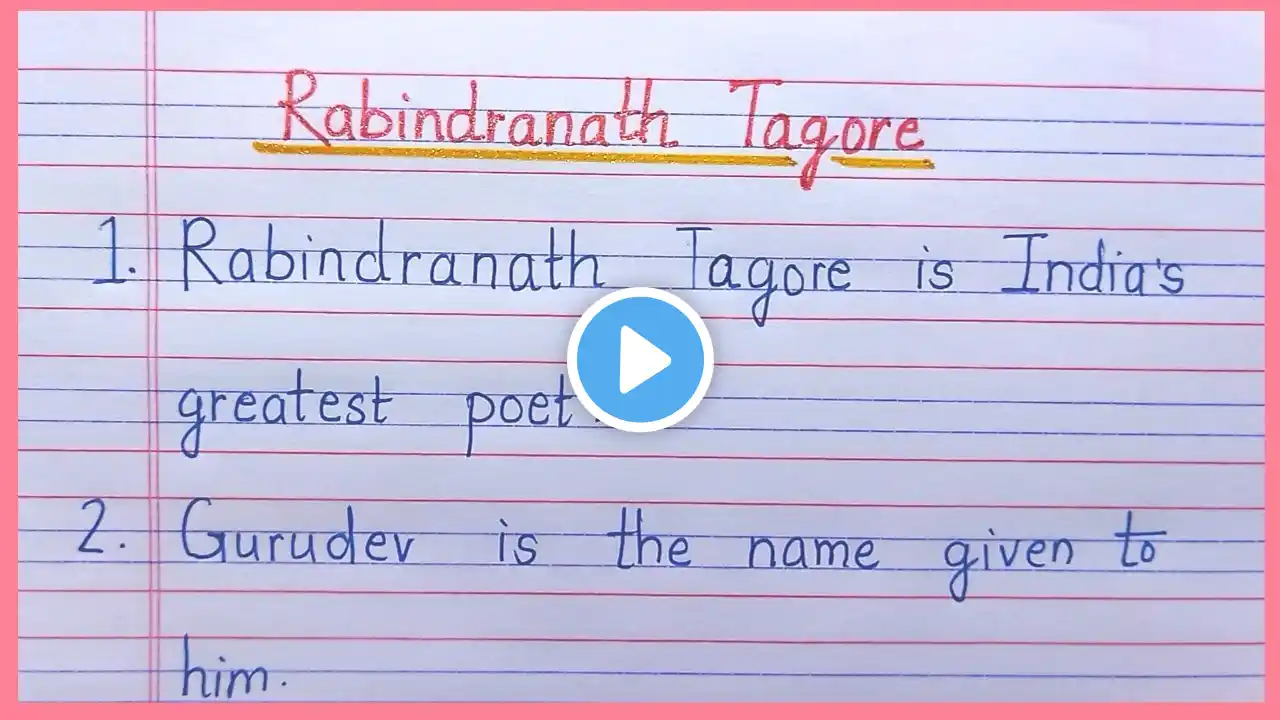 Rabindranath Tagore
1. Rabindranath Tagore is India's
greatest poet.
2. Gurudev is the name given to
him.